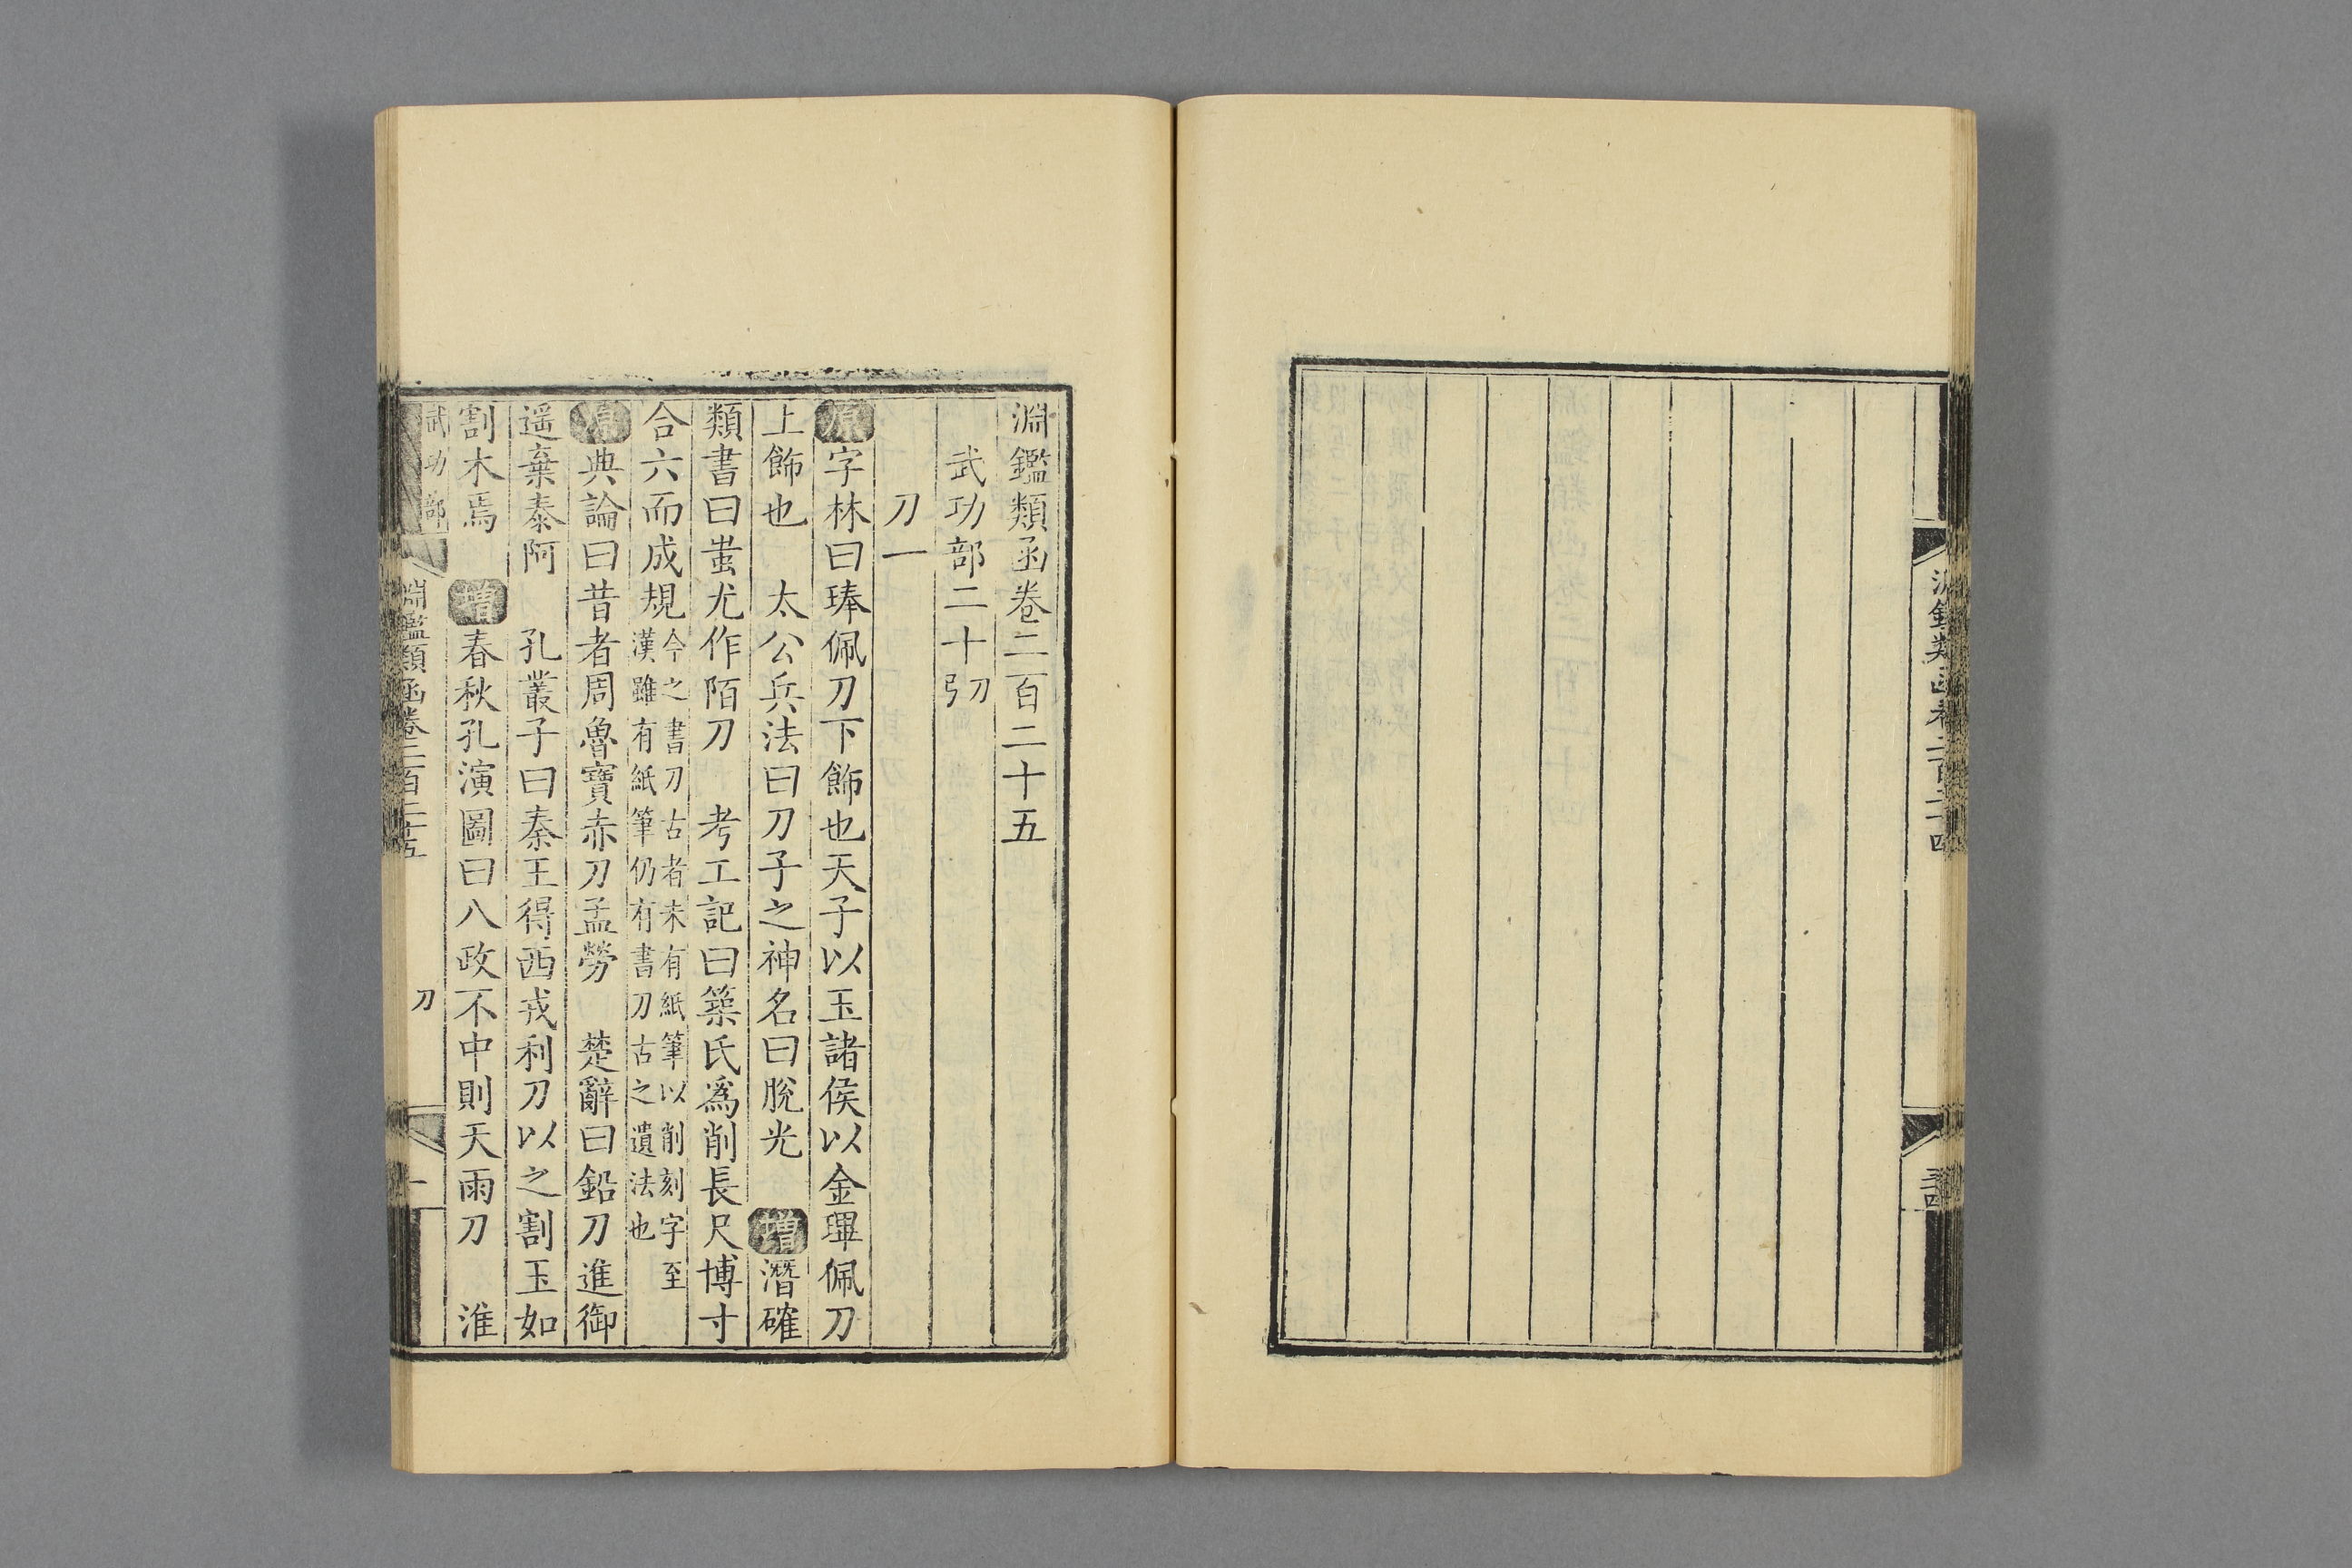 淵鑑類函卷二百二十四
三十四
淵鑑類函卷二百二十五
武功部二十 刀 弓
刀一
原 字林曰琫佩刀下飾也天子以玉諸侯以金琕佩刀
上飾也 太公兵法曰刀子之神名曰脫光 增 潛確
類書曰蚩尤作陌刀 考工記曰築氏為削長尺博寸
合六而成規 今之書刀古者未有紙筆以削刻字至
漢雖有紙筆仍有書刀古之遺法也
原 典論曰昔者周魯寶赤刀孟勞 楚辭曰鉛刀進御
遥棄泰阿 孔叢子曰秦王得西戎利刀以之割玉如
割木焉 增 春秋孔演圖曰八政不中則天雨刀 淮
武功部
淵鑑類函卷二百二十五
刀
一